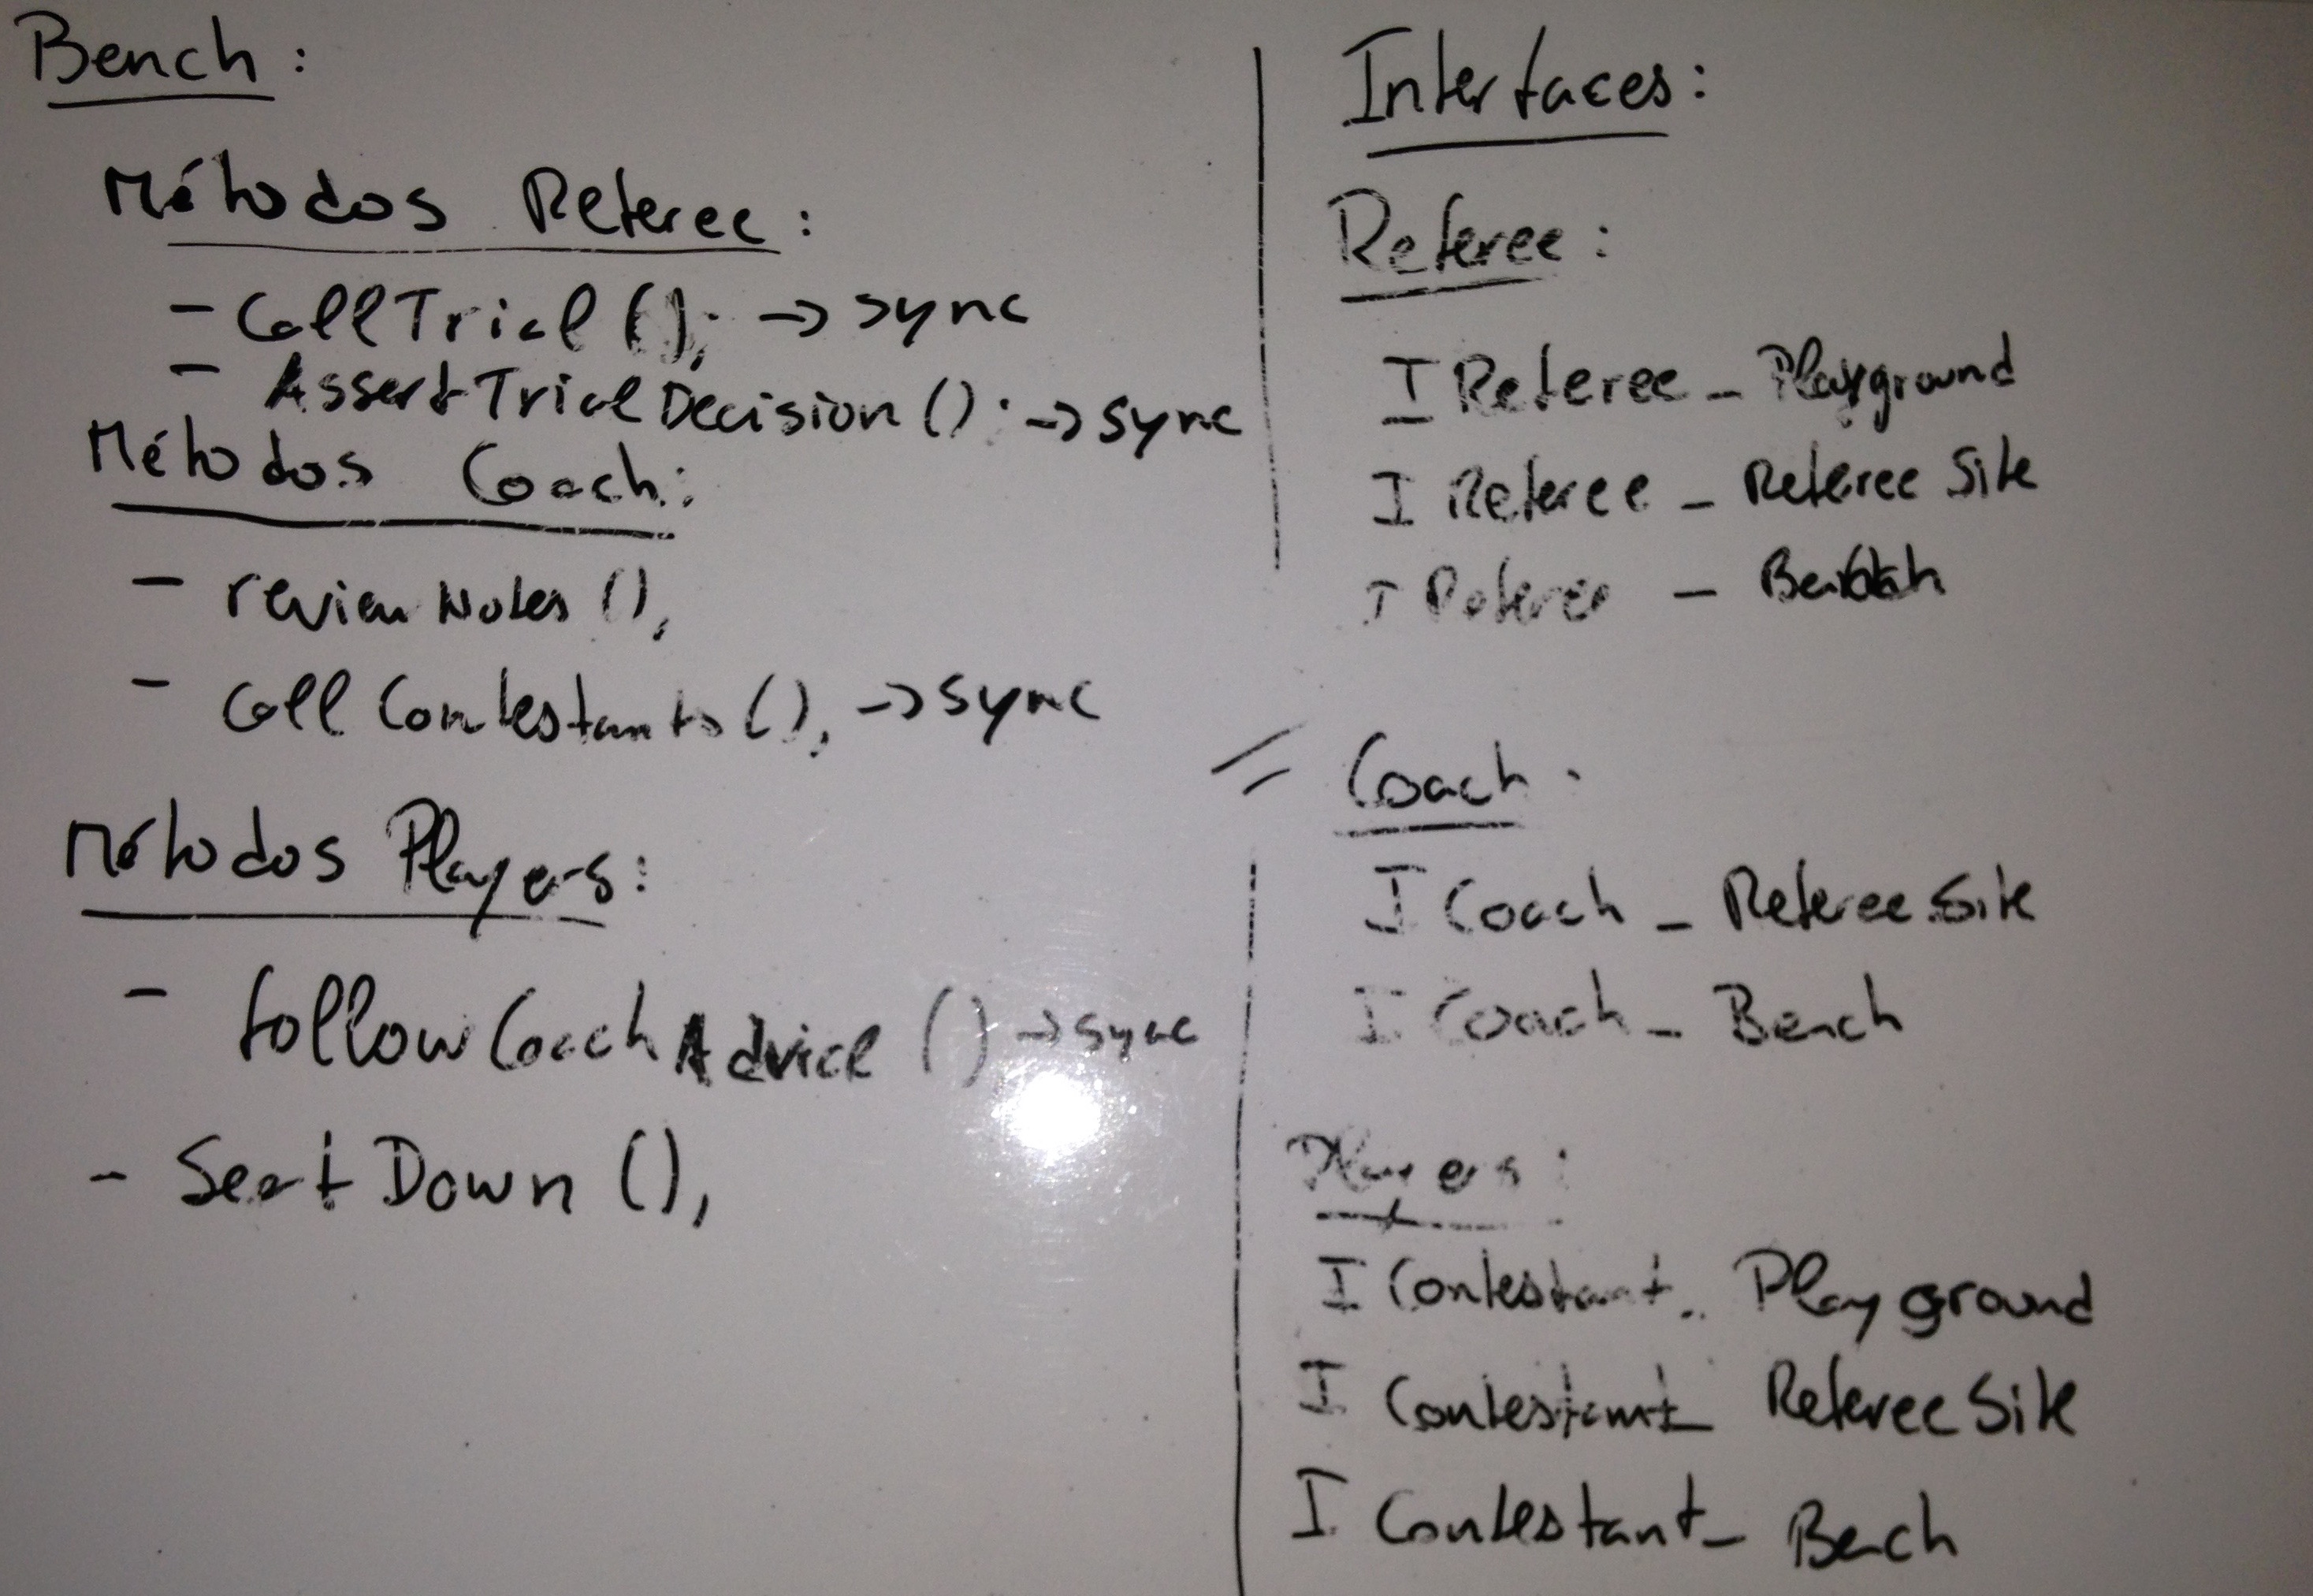 Bench :
Métodos Referee :
- CallTrial (); -> sync
- AssertTrialDecision (); -> sync
Métodos Coach :
- reviewNotes (),
- callContestants (), -> sync
Métodos Players :
- followCoachAdvice () -> sync
- SeatDown (),
Interfaces :
Referee :
I Referee _ Playground
I Referee _ Referee Site
I Referee _ Bench
Coach :
I Coach _ Referee Site
I Coach _ Bench
Players :
I Contestant _ Playground
I Contestant _ Referee Site
I Contestant _ Bench